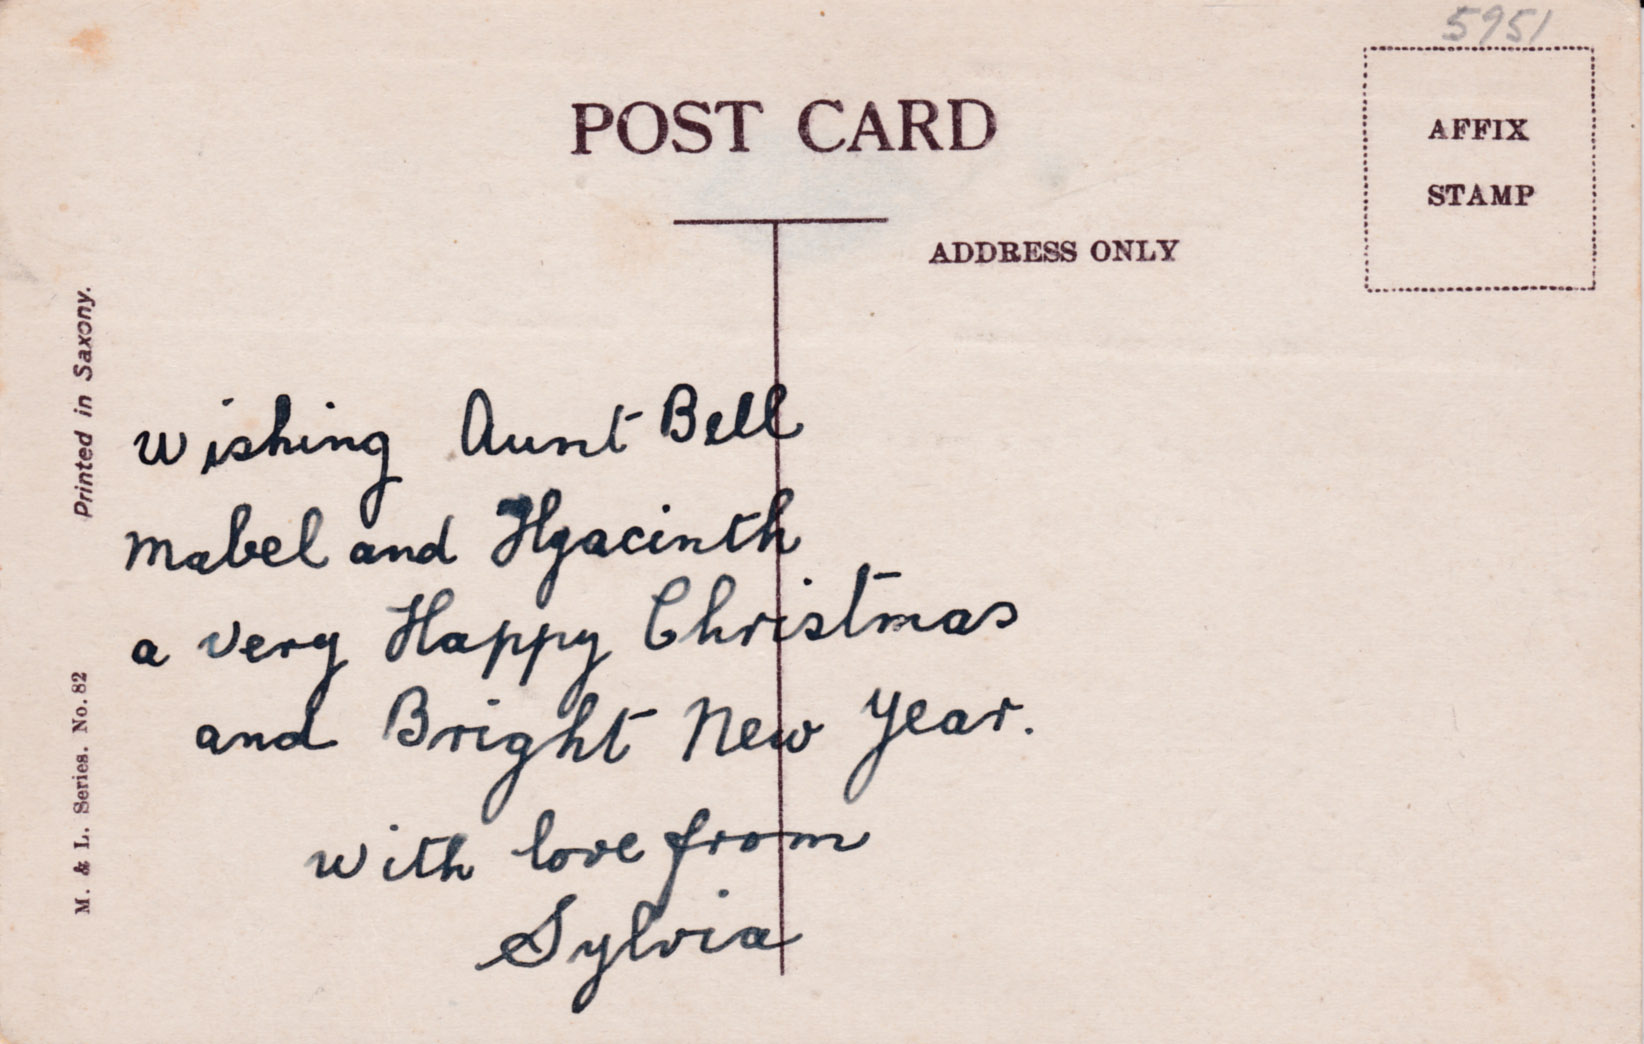 5951
POST CARD
AFFIX
STAMP
ADDRESS ONLY
Printed in Saxony.
M. & L. Series. No. 82
Wishing Aunt Bell
Mabel and Hyacinth
a very Happy Christmas
and Bright New Year.
with love from
Sylvia